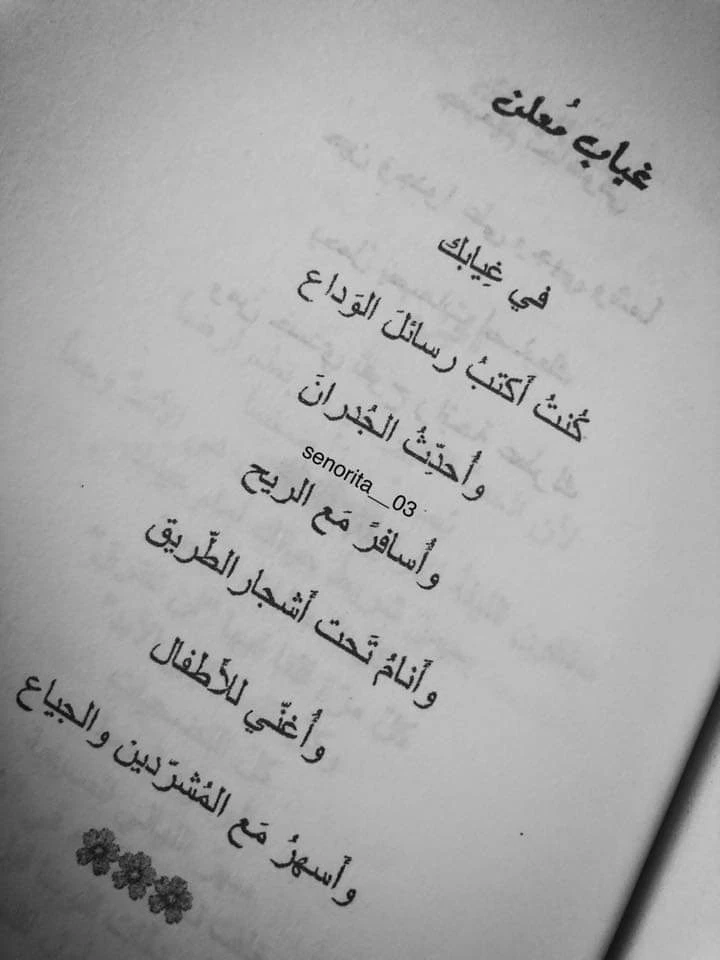 غياب مُعلن
في غِيابك
كُنتُ أَكتبُ رسائلَ الوَداع
وأُحدِّثُ الجُدرانَ
senorita__03
وأُسافرً مَع الريح
وأَنامُ تَحت أَشجار الطّريق
وأُغنّي للأَطفال
وأَسهرُ مَع المُشرّدين والجياع